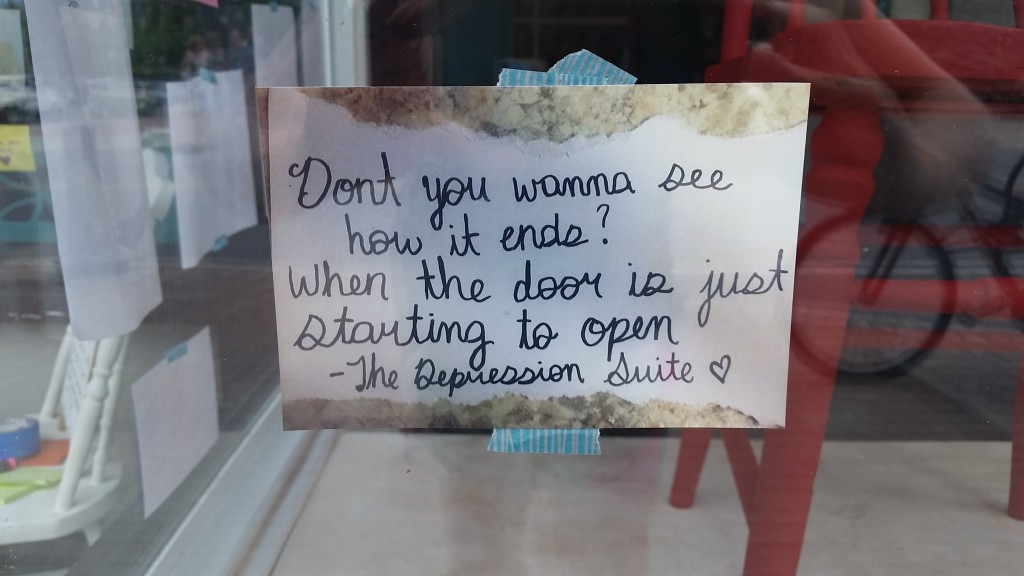 Dont you wanna see
how it ends?
When the door is just
starting to open
-The Depression Suite ♡